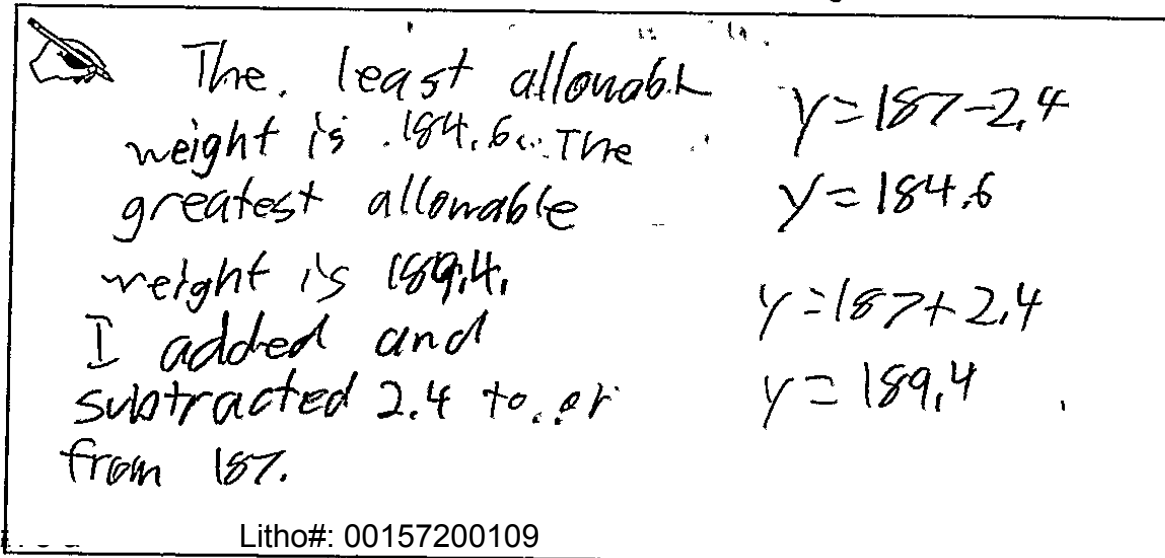 The least allowable
weight is 184.6. The
greatest allowable
weight is 189.4.
I added and
subtracted 2.4 to or
from 187.
y = 187 - 2.4
y = 184.6
y = 187 + 2.4
y = 189.4
Litho#: 00157200109